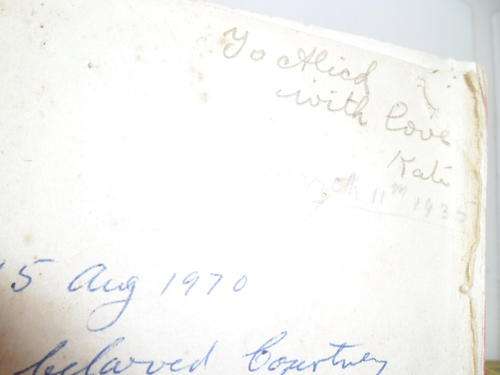 To Alick
with love
Kate
30th 11m 1935
15 Aug 1970
beloved Courtney